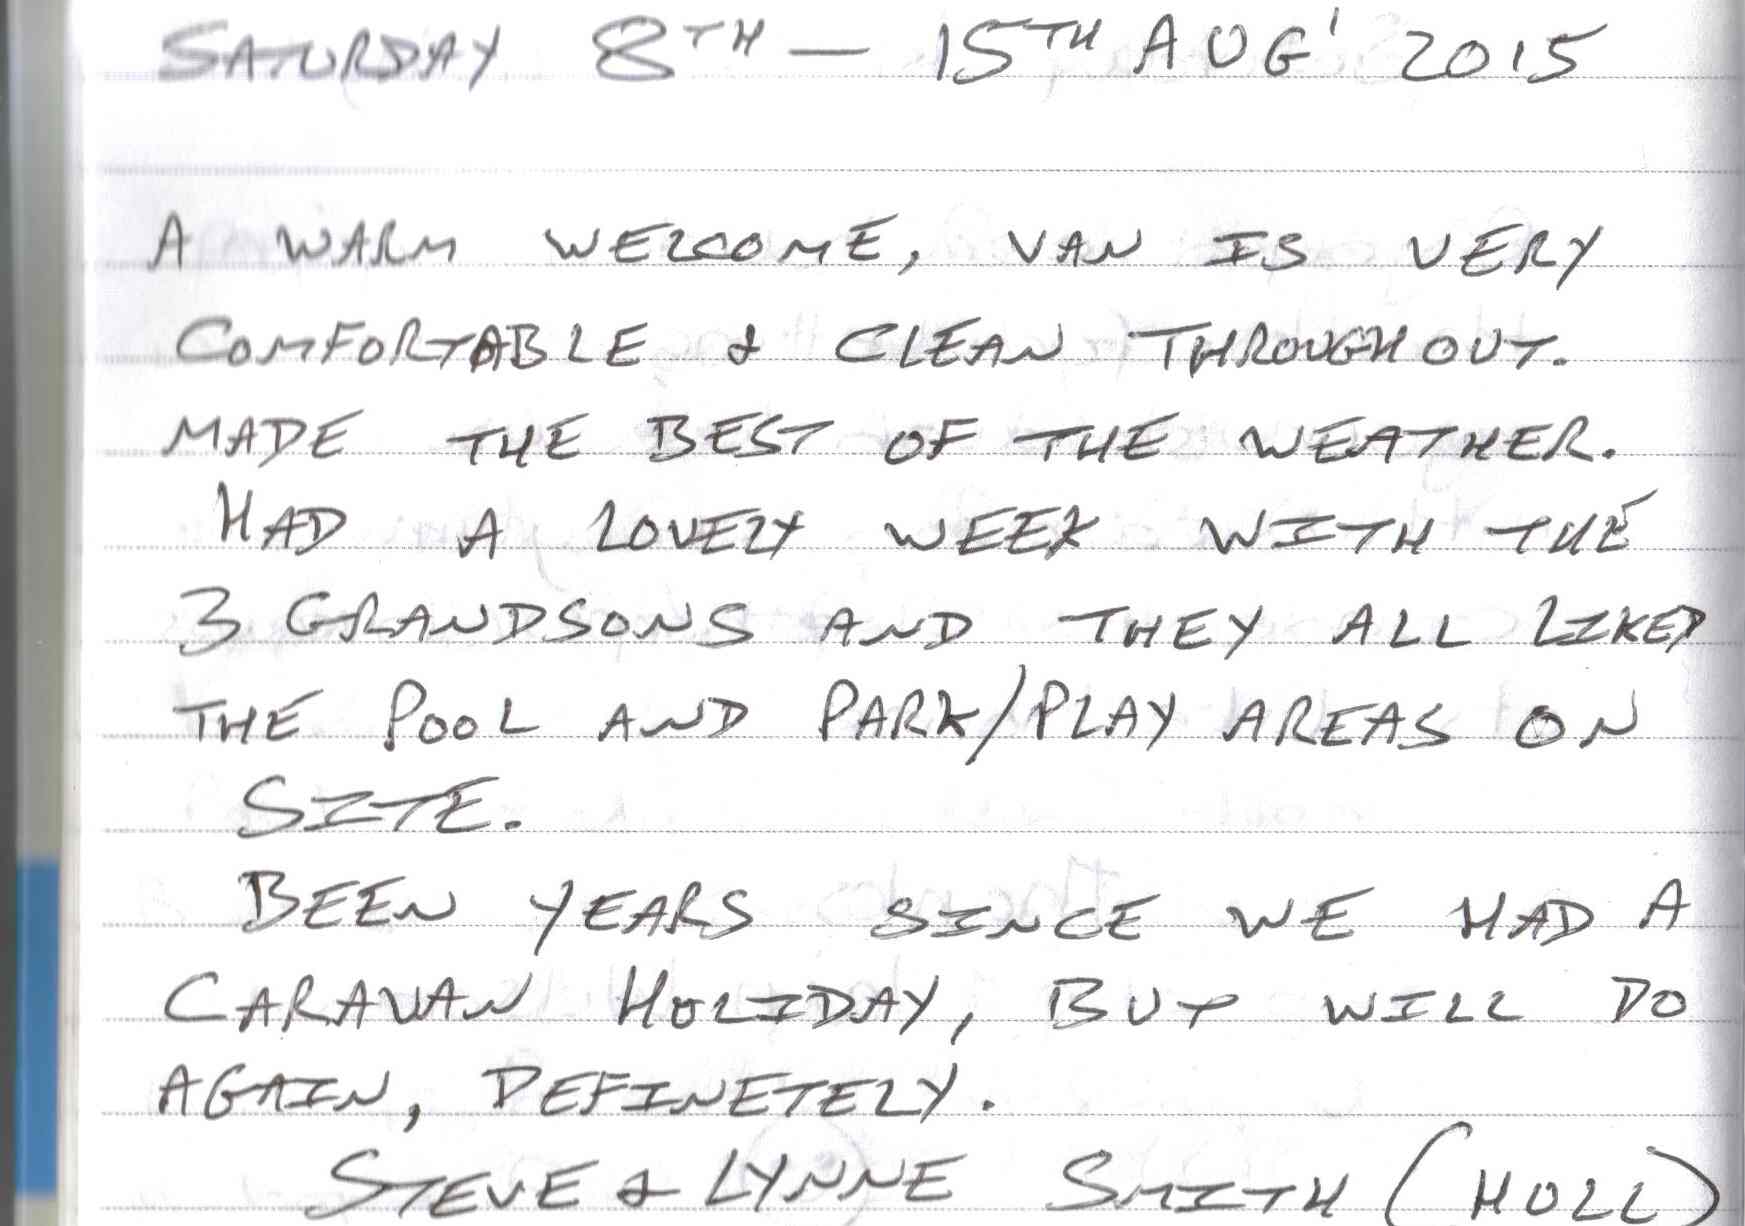 SATURDAY 8TH — 15TH AUG' 2015
A WARM WELCOME, VAN IS VERY
COMFORTABLE & CLEAN THROUGHOUT.
MADE THE BEST OF THE WEATHER.
HAD A LOVELY WEEK WITH THE
3 GRANDSONS AND THEY ALL LIKED
THE POOL AND PARK/PLAY AREAS ON
SITE.
BEEN YEARS SINCE WE HAD A
CARAVAN HOLIDAY, BUT WILL DO
AGAIN, DEFINETELY.
STEVE & LYNNE SMITH (HULL)